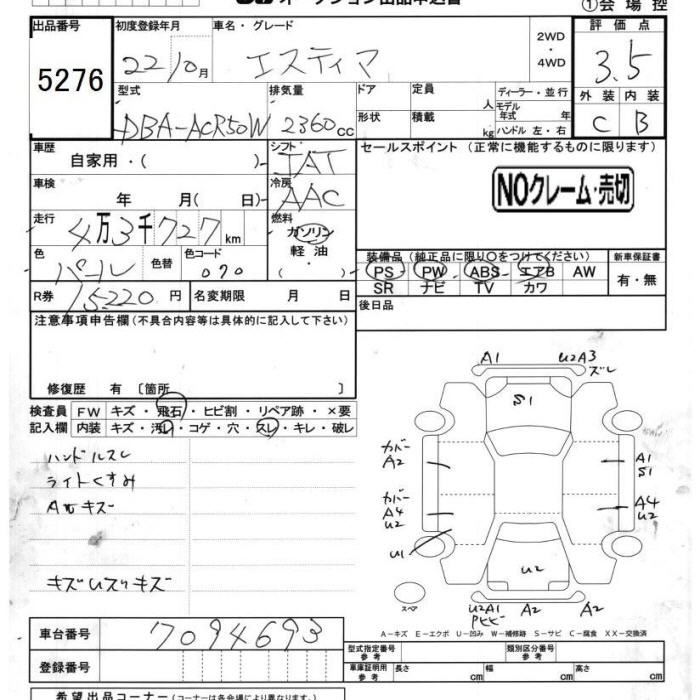 オークション出品申込書
①会場控
出品番号
5276
初度登録年月
22 10月
車名・グレード
エスティマ
2WD
・
4WD
評価点
3.5
外装 内装
C B
型式
DBA-ACR50W
排気量
2360cc
ドア
形状
定員 人
積載 kg
ディーラー・並行
モデル年式 年
ハンドル 左・右
車歴
自家用・( )
シフト
IAT
車検
年 月( 日)
冷房
AAC
走行
4万3千727km
燃料
ガソリン
軽油
( )
色
パール
色替
色コード
070
R券 15220円
名変期限 月 日
セールスポイント (正常に機能するものに限ります)
NOクレーム・売切
装備品(純正品に限り○をつけてください)
PS PW ABS エアB AW
SR ナビ TV カワ
新車保証書
有・無
後日品
注意事項申告欄(不具合内容等は具体的に記入して下さい)
修復歴 有 〔箇所 〕
検査員記入欄
FW キズ・飛石・ヒビ割・リペア跡・×要
内装 キズ・汚れ・コゲ・穴・スレ・キレ・破レ
ハンドルスレ
ライトくすみ
キズ
キズ キズ
A1
U2A3
ズレ
S1
カバー
A2
A1
S1
カバー
A4
U2
A4
U2
U1
U2
スペア
U2A1
A2
A2
A-キズ E-エクボ U-凹み W-補修跡 S-サビ C-腐食 XX-交換済
車台番号
7094693
登録番号
型式指定番号
参考
類別区分番号
参考
車庫証明用
参考
長さ cm
幅 cm
高さ cm
希望出品コーナー(コーナーは各会場により異なります。)